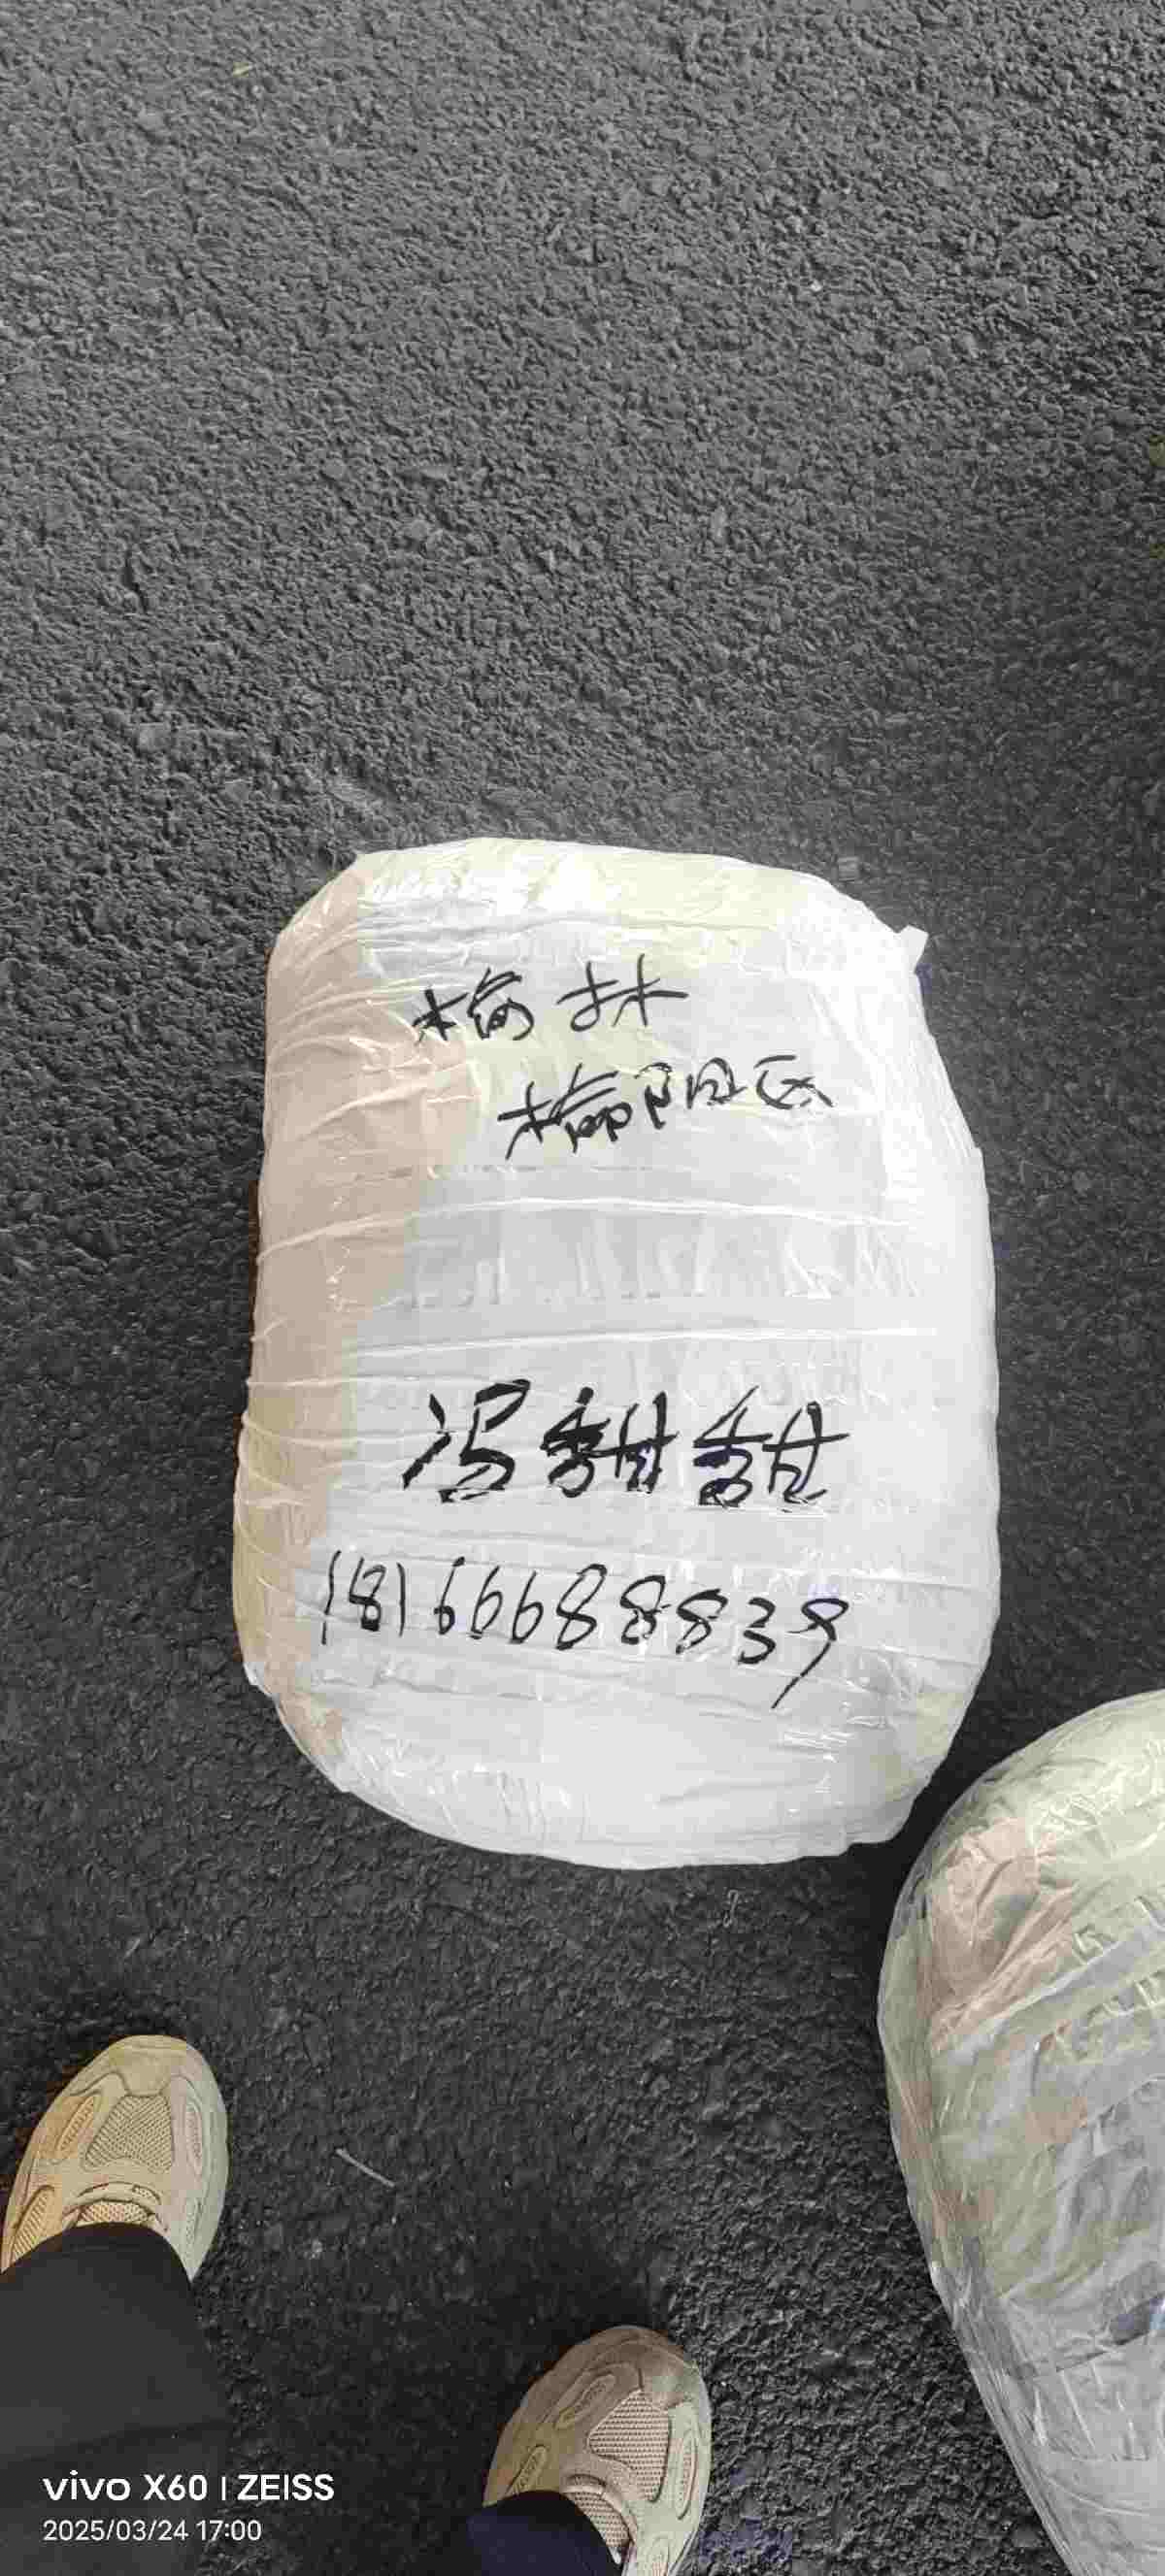 榆林
榆阳区
冯甜甜
18166688839
vivo X60 | ZEISS
2025/03/24 17:00